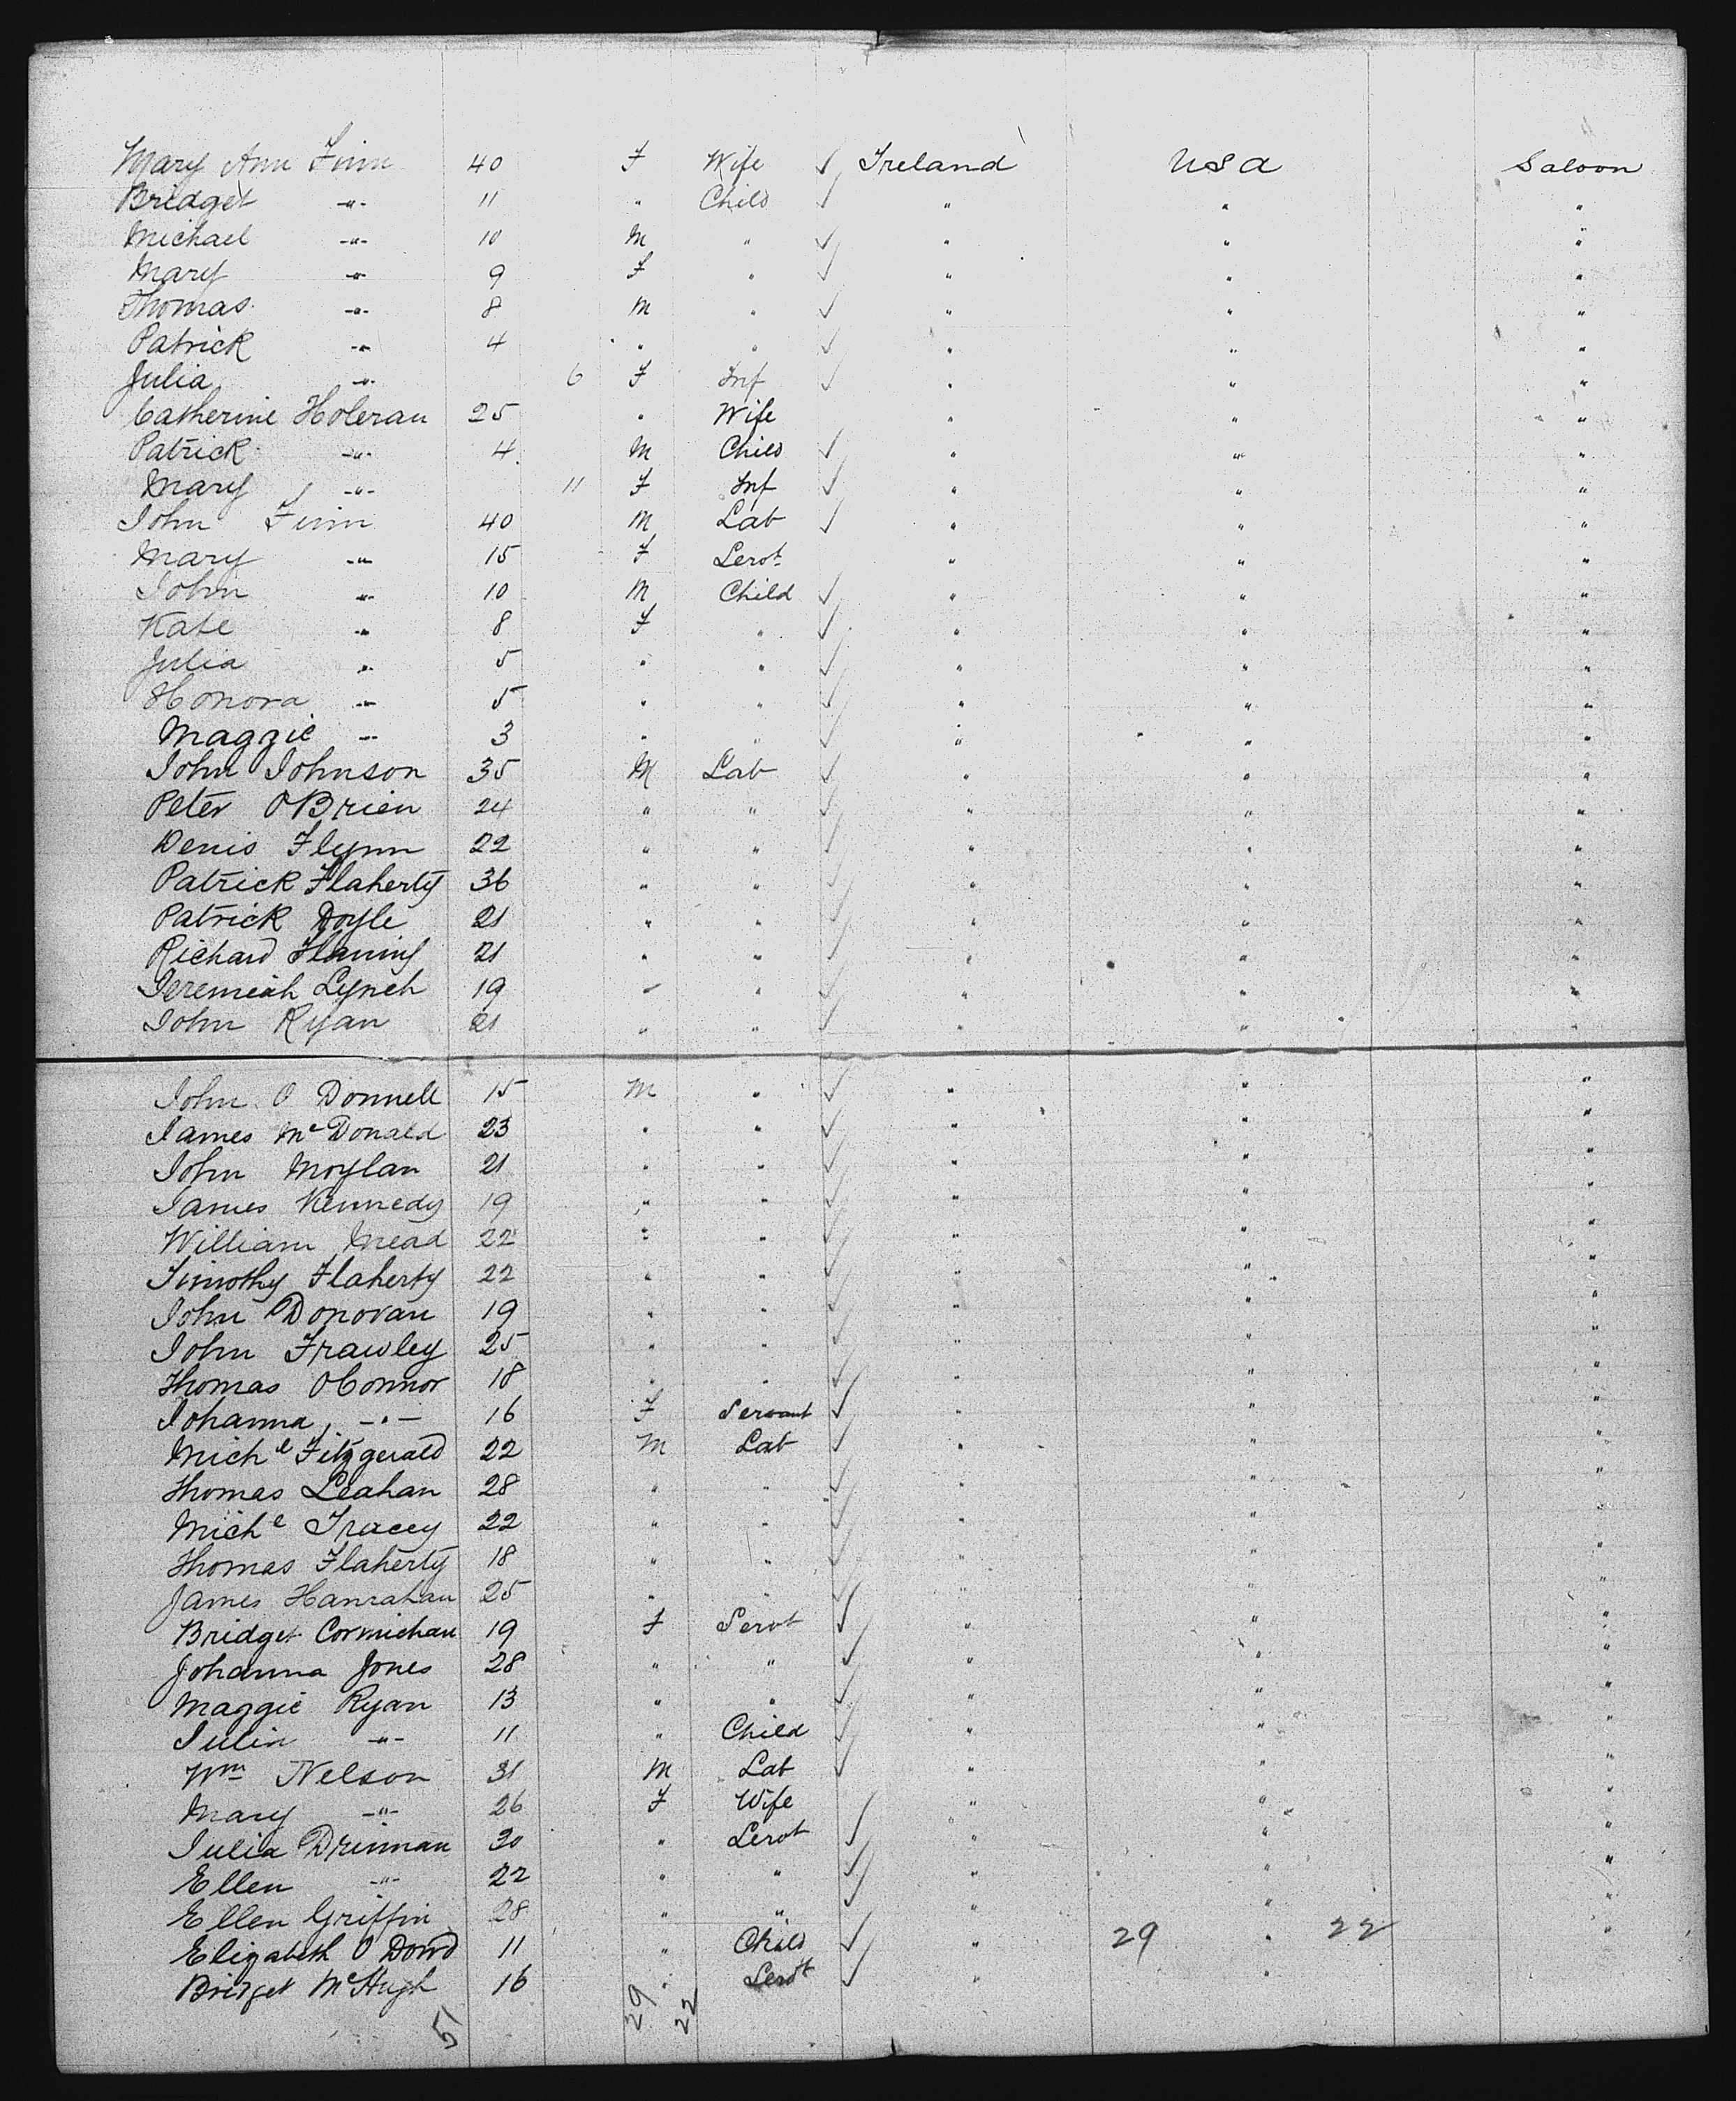 Mary Ann Finn 40 F Wife ✓ Ireland USA Saloon
Bridget -"- 11 " Child ✓ " " "
Michael -"- 10 M " ✓ " " "
Mary -"- 9 F " ✓ " " "
Thomas -"- 8 M " ✓ " " "
Patrick -"- 4 " " ✓ " " "
Julia -"- 6 F Inf ✓ " " "
Catherine Holeran 25 " Wife " " "
Patrick -"- 4 M Child ✓ " " "
Mary -"- 11 F Inf ✓ " " "
John Finn 40 M Lab ✓ " " "
Mary -"- 15 F Servt " " "
John -"- 10 M Child ✓ " " "
Kate -"- 8 F " ✓ " " "
Julia -"- 5 " " ✓ " " "
Honora -"- 5 " " ✓ " " "
Maggie -"- 3 " " ✓ " " "
John Johnson 35 M Lab ✓ " " "
Peter OBrien 24 " " ✓ " " "
Denis Flynn 22 " " ✓ " " "
Patrick Flaherty 36 " " ✓ " " "
Patrick Doyle 21 " " ✓ " " "
Richard 21 " " ✓ " " "
Jeremiah Lynch 19 " " ✓ " " "
John Ryan 21 " " ✓ " " "
John O Donnell 15 M " ✓ " " "
James McDonald 23 " " ✓ " " "
John Moylan 21 " " ✓ " " "
James Kennedy 19 " " ✓ " " "
William Mead 22 " " ✓ " " "
Timothy Flaherty 22 " " ✓ " " "
John Donovan 19 " " ✓ " " "
John Frawley 25 " " ✓ " " "
Thomas OConnor 18 " " ✓ " " "
Johanna -"- 16 F Servant ✓ " " "
Michl Fitzgerald 22 M Lab ✓ " " "
Thomas Leahan 28 " " ✓ " " "
Michl Tracey 22 " " ✓ " " "
Thomas Flaherty 18 " " ✓ " " "
James Hanrahan 25 " " ✓ " " "
Bridget 19 F Servt ✓ " " "
Johanna Jones 28 " " ✓ " " "
Maggie Ryan 13 " " ✓ " " "
-"- 11 " Child ✓ " " "
Wm Nelson 31 M Lab ✓ " " "
Mary -"- 26 F Wife " " "
Julia Drinnan 30 " Servt ✓ " " "
Ellen -"- 22 " " ✓ " " "
Ellen Griffin 28 " " ✓ " " "
Elizabeth O Dowd 11 " Child ✓ " 29 " 22 "
Bridget McHugh 16 " Servt ✓ " "
51 29 22